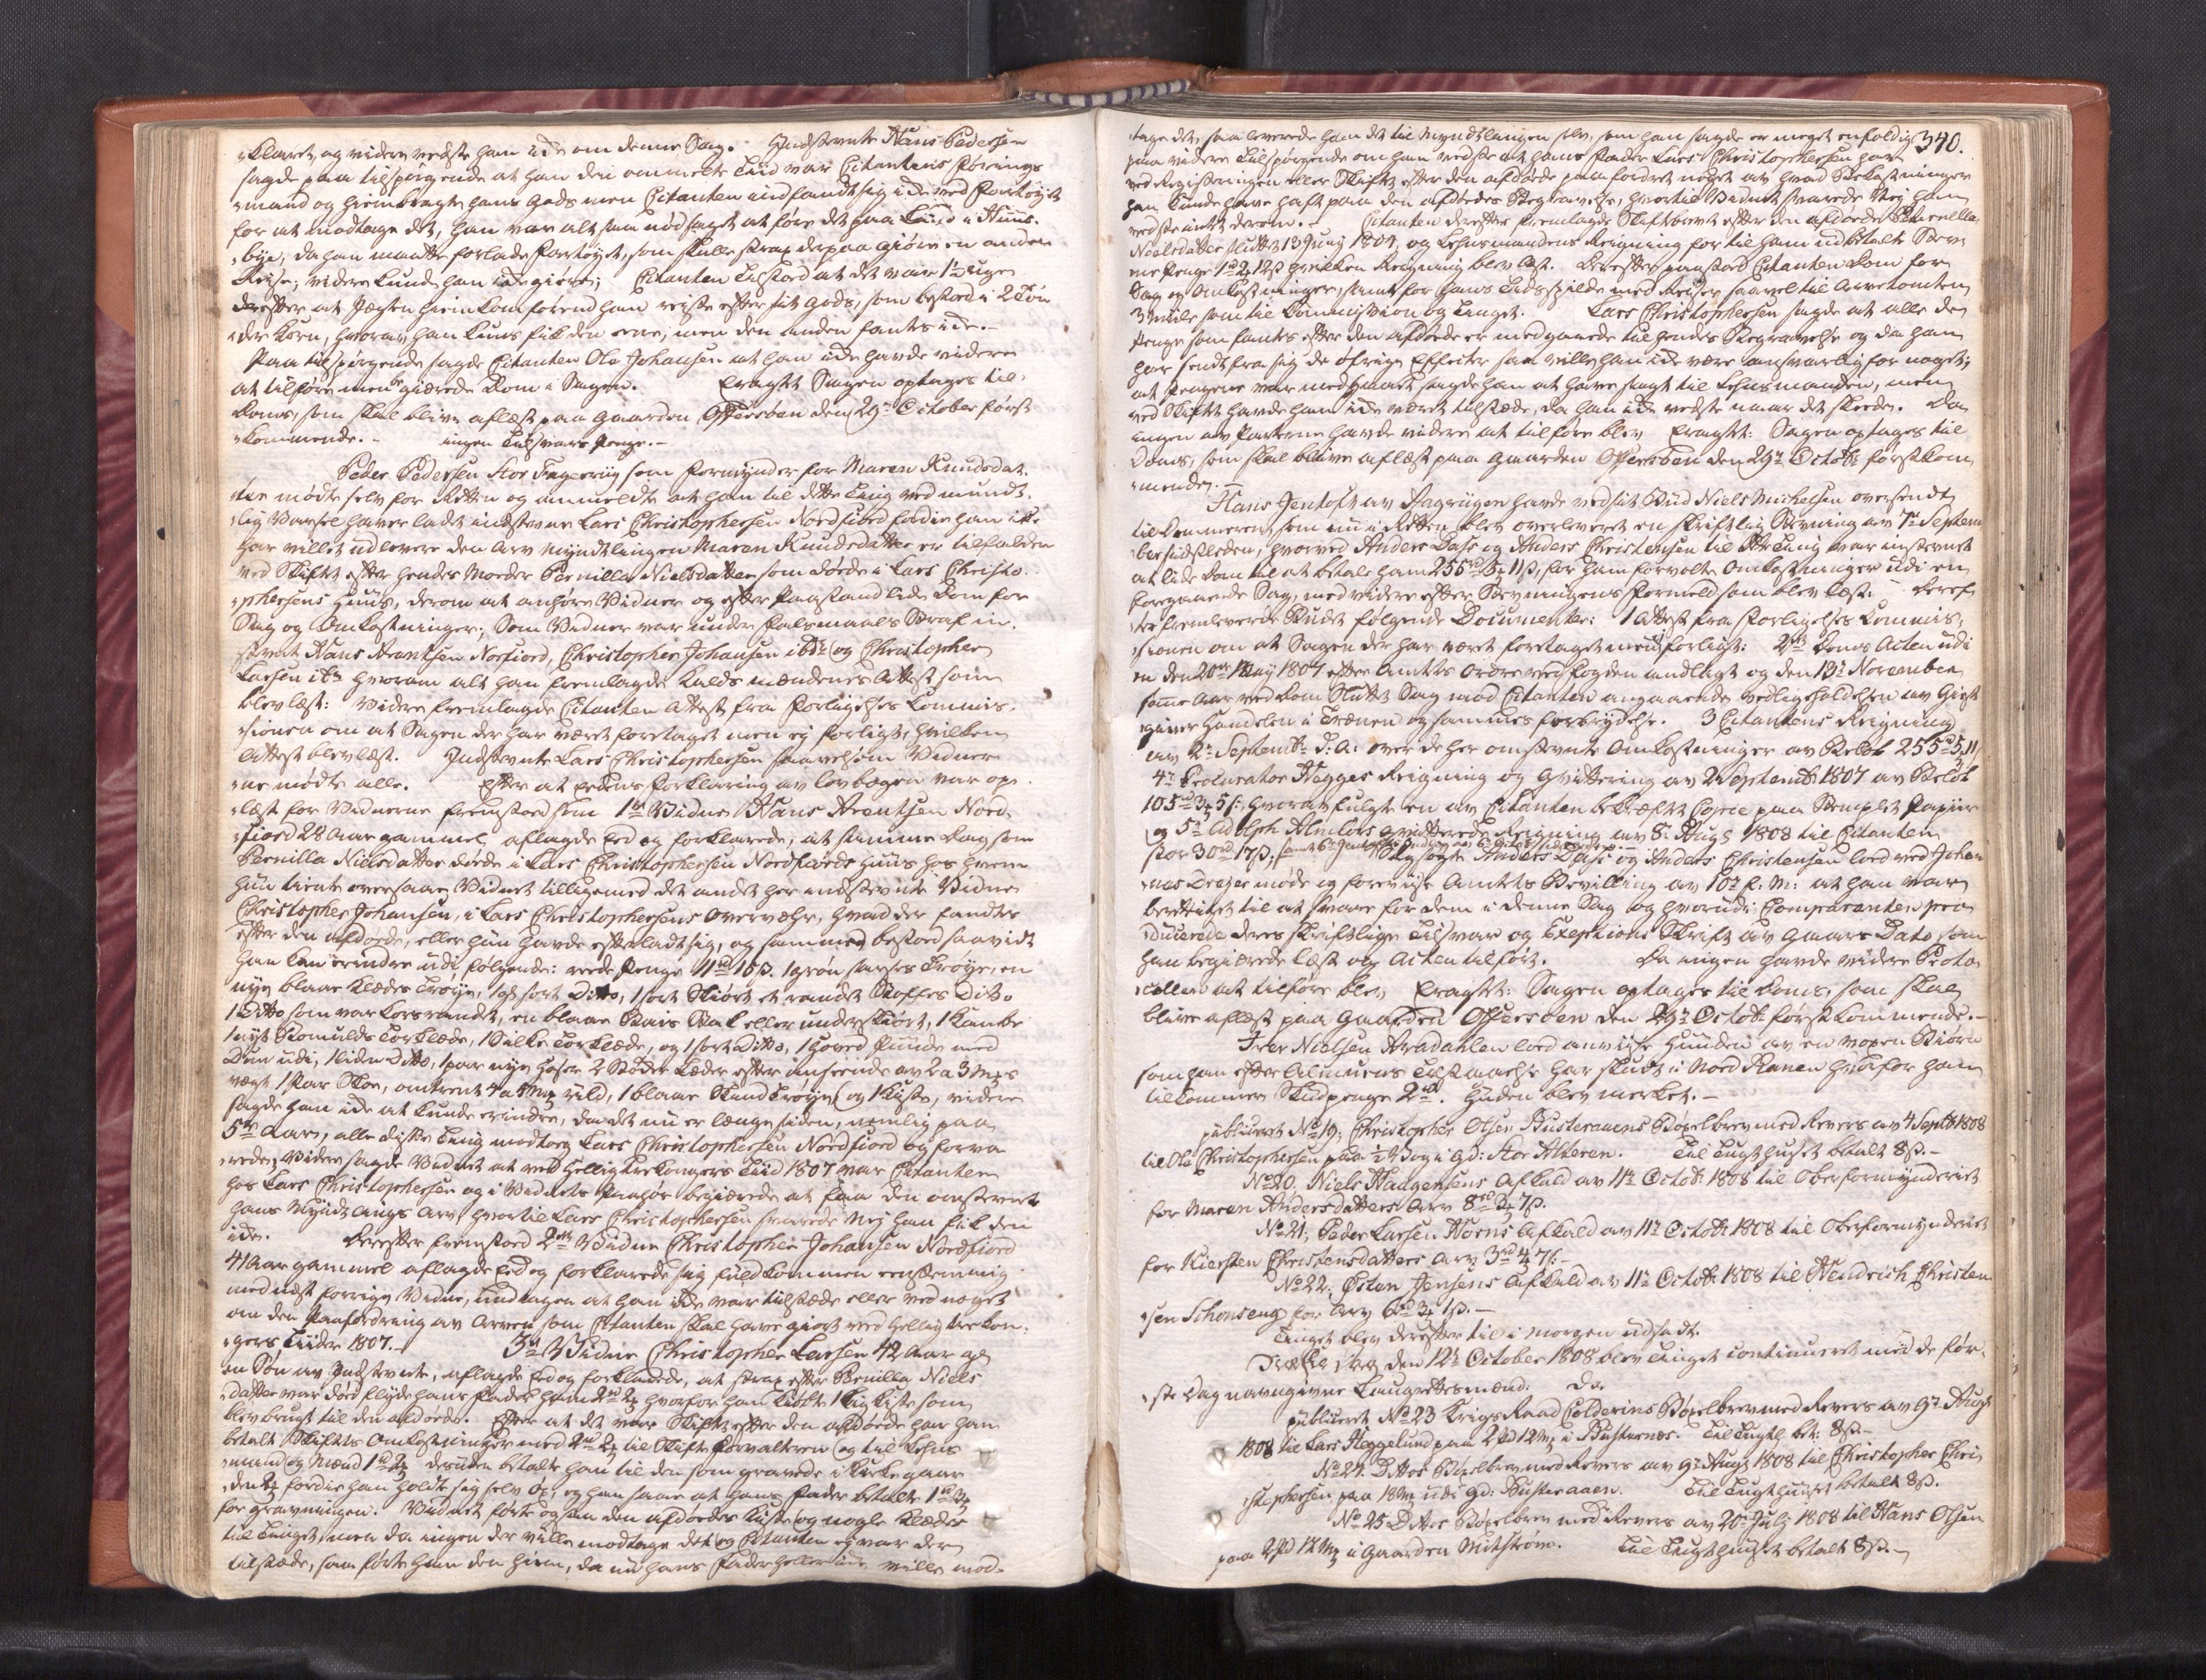 -klaret, og videre vedste han icke om denne Sag. Indstevnte Hans Pedersen
sagde paa tilspørgende at han den ommelte Tiid var Citantens Førings
-mand og hiembragte hans gods men Citanten indfandt sig icke ved Fartøyet
for at modtage det, han var altsaa nødsaget at føre det paa Land i
-bye, da han maatte forlade Fartøyet, som skulle strax derpaa giøre en anden
Reise; videre kunde han icke giøre; Citanten tilstoed at det var 1 uge
derefter at Jægten hiemkom førend han reiste efter sit gods, som bestoed i 2 Tøn
-der Korn, hvoraf han kuns fik den eene, men den anden fantes icke.-
Paa tilspørgende sagde Citanten Ole Johansen at han icke havde videre
at tilføre men begiærede Dom i Sagen. Eragtet Sagen optages til
Doms, som skal blive aflæst paa gaarden Offersøen den 29de October først
-kommende.- ingen Tilsvars Penge.-
Peder Pedersen Stor Fagerviig som Formynder for Maren Knudsdat-
-ter mødte selv for Retten og anmeldte at han til dette Ting ved mundt-
-lig Varsel haver ladet indstevne Lars Christophersen Nordfiord fordie han ikke
har villet udlevere den Arv Myndtlingen Maren Knudsdatter er tilfalden
ved Skiftet efter hendes Moeder Pernille Nielsdatter som døde i Lars Christo-
-phersens Huus, derom at anhøre Vidner og efter Paastand lide Dom for
Sag og Omkostninger; Som Vidner var under Falsmaals Straf in-
stevnt Hans Arentsen Norfiord, Christopher Johansen ibd: og Christopher
Larsen ib: hvorom alt han fremlagde Kalds mændenes Attest som
blev læst: Videre fremlagde Citanten Attest fra Forligelses Commis-
-sionen om at Sagen der har været foretaget men ej forligt, hvilken
Attest blev læst. Indstevnte Lars Christophersen saavelsom Vidner
-ne mødte alle. Efter at Eedens Forklaring av Lovbogen var op-
-læst for Vidnerne fremstoed som 1ste Vidne Hans Arentsen Nord-
-fiord 28 Aar gammel aflagde Eed og forklarede, at samme Dag som
Pernilla Nielsdatter døde i Lars Christophersen Nordfiords Huus hos hvem
hun tiente oversaae Vidnet tilligemed det andet her indstevnte Vidne
Christopher Johansen, i Lars Christophersens Overværelse, hvad der fandtes
efter den afdøde, eller hun havde efterladt sig, og sammes bestoed saavidt
han kan erindre udi følgende: rede Penge 11rd 15s. 1 grøn Trøye, en
nye blaae Klædes Trøye, 1 sort Ditto, 1 sort Skiørt et randet Stoffes Ditto
1 Ditto som var Korsrandet, en blaae Bais Stak eller underskiørt, 1 Kaabe
1 nyt Bomulds Tørklæde, 1 Silke Tørklæde, og 1 sort Ditto, 1 Hoved Puude med
Dun udi, 1 liden Ditto, 1 par nye Hoser 2 Støcker Læder efter anseende av 2 a 3 mk:s
vægt 1 Par Skoe, omtrent 4 a 5 mk uld, 1 blaae Skind Trøye, og 1 Kiste, videre
sagde han icke at kunde erindre, da det nu er længe siden, nemlig paa
5te Aar, alle disse Ting modtog Lars Christophersen Nordfiord og forva-
-rede; Videre sagde Vidnet at ved Hellig trekongers Tiid 1807 var Citanten
hos Lars Christophersen og i Vidnets Paahør begiærede at faa den omstevnte
hans Myndtlings Arv, hvortil Lars Christophersen svarede Nej han fik den
icke. Derefter fremstoed 2det Vidne Christopher Johansen Nordfiord
41 Aar gammel aflagde Eed og forklarede sig fuldkommen eenstemmig
med næst forrige Vidne, undtagen at han icke var tilstæde eller ved noget
om den Paafordring av Arven som Citanten skal have giort ved Hellig trekon-
-gers Tiider 1807. 3de Vidne Christopher Larsen 42 Aar gl
en Søn av Indstevnte, aflagde Eed og forklarede, at strax efter Pernilla Niels-
-datter var død flyede hans Fader ham 2rd 2 hvorfor han kiøbte 1 Ligkiste som
blev brugt til den afdøde. Efter at det var Skiftet efter den afdøde har han
betalt Skiftets Omkostninger med 2rd 2 til Skifte Forvalteren og til Lehns-
-mand og Mænd 1rd 2 desuden betalte han til den som gravede i Kirkegaar-
-den fordie han holdte sig selv Øl, og han saae at hans Fader betalte 1rd 3
for gravningen. Vidnet førte ogsaa den afdødes Kiste og nogle Klæder
til Tinget, men da ingen der ville modtage det og Citanten ej var der
tilstæde, saa førte han den hiem, da nu hans Fader heller icke ville mod-
340.
-tage det, saa leverede han det til Myndtlingen selv, som han sagde er meget eenfoldig
paa videre Tilspørgende om han vedste at hans Fader Lars Christophersen har
ved Registeringen eller Skiftet efter den afdøde paafordret noget av hvad Bekostninger
han kunde have haft paa den afdødes Begravelse, hvortil Vidnet svarede Nej han
vedste intet derom.- Citanten derefter fremlagde Skiftebrevet efter den afdøde Pernella
Neelsdatter sluttet 13 Juny 1804, og Lehnsmandens Reigning for til ham udbetalte Stev-
ne Penge 1rd 2 12s hvilken Reigning blev læst. Derefter paastoed Citanten Dom for
Sag og Omkostninger, samt for hans Tidsspilde med Reiser saavel til Arvetomten
3 miile som til Commission og Tinget. Lars Christophersen sagde at alle de
Penge som fantes efter den afdøde er medgaaede til hendes Begravelse og da han
har sendt fra sig de øfrige Effecter saa ville han icke være ansvarlig for noget;
at Pengene var medgaaet sagde han at have sagt til Lehnsmanden, men
ved Skiftet havde han icke været tilstæde, da han icke vedste naar det skeede. Da
ingen av Parterne havde videre at tilføre blev Eragtet: Sagen optages til
Doms, som skal blive aflæst paa gaarden Offersøen den 29de Octobr: førstkom-
-mende.-
Hans Jentoft av havde ved sit Bud Niels Michelsen oversendt
til Dommeren, som nu i Retten blev overleveret en skriftlig Stevning av 7de Septem-
-ber sidstleden, hvorved Anders Dass og Anders Christensen til dette Ting var instevnet
at lide Dom til at betale ham 255rd 5 11s, for ham forvolte Omkostninger udi en
foregaaende Sag, med videre efter Stevningens Formeld som blev læst. Deref-
-ter fremleverede Budet følgende Documenter: 1 Attest fra Forligelses Commis-
-sionen om at Sagen der har været foretaget men ej forligt: 2det Doms Acten udi
en den 20de May 1807 efter Amtets Ordre ved Fogden andlagt og den 13de November
samme Aar ved Dom sluttet Sag mod Citanten angaaende vedligeholdelsen av Giest-
-giver Handelen i Trænen og sammes forbrydelse. 3 Citantens Reigning
av 2de Septembr: d: A: over de her omstevnte Omkostninger av Beløb 255rd 5 11
4de Procurator Hegges Reigning og Qvittering av 2 Septembr 1807 av Beløb
105rd 3 5s, hvoraf fulgte en av Citanten bekræftet Copie paa Stemplet Papiir
og 5te Adolph qvitterede Reigning av 8de Augs 1808 til Citanten
stor 30rd 17s; Paa Indstevnte Anders Dass og Anders Christensen loed ved Johan-
-nes Dreyer møde og foreviise Amtets Bevilling av 10de f: M: at han var
berettiget til at svare for dem i denne Sag og hvorudi Comparenten pro-
-ducerede deres skriftlige Tilsvar og Exeptions Skrift av Gaars Dato som
han begiærede læst og Acten tilført. Da ingen havde videre Proto-
-collen at tilføre blev Eragtet: Sagen optages til Doms, som skal
blive aflæst paa Gaarden Offersøen den 29de Octobr: førstkommende.-
Iver Nielsen Aradahlen loed anviise Huuden av en voxen Biørn
som han efter Almuens Tilstaaelse har skudt i Nord Ranen hvorfor ham
tilkommer Skudpenge 2rd. Huden blev merket.-
publiceret No 19, Christopher Olsen Busteraaens Bøxelbrev med Revers av 4 Septbr 1808
til Ole Christophersen paa ½ Vog i Gd: Stor Alteren. Til Tugthuset betalt 8s.-
No 20. Niels Haagensens Afkald av 11te Octobr: 1808 til Oberformynderiet
for Maren Andersdatters Arv 8rd 2 7s.
No 21, Peder Larsen Horns Afkald av 11te Octobr 1808 til Oberformynderiet
for Kiersten Christensdatters Arv 3rd 4 7s.-
No 22. Østen Jensens Afkald av 11te Octobr 1808 til Hendrich Christen-
-sen Schonseng for Arv 6rd 3 1s.-
Tinget blev derefter til i morgen udsadt.
den 12te October 1808 blev Tinget continueret med de før-
-ste Dag navngivne Laugrettesmænd: Da
publiceret No 23 Krigs Raad Colderins Bøxelbrev med Revers av 9de Augs
1808 til Lars Heggelund paa 2 pd 12 mk i Busternæs. Til Tugth. bet: 8s.-
No 24. Dittos Bøxelbrev med Revers av 9de Augs 1808 til Christopher Chri-
-stophersen paa 18 mk udi Gd: Busteraaen. Til Tugthuuset betalt 8s.
No 25 Dittos Bøxelbrev med Revers av 20de July 1808 til Hans Olsen
paa 2 pd 12 mk i Gaarden Mitstrøm. Til Tugthuuset betalt 8s.-